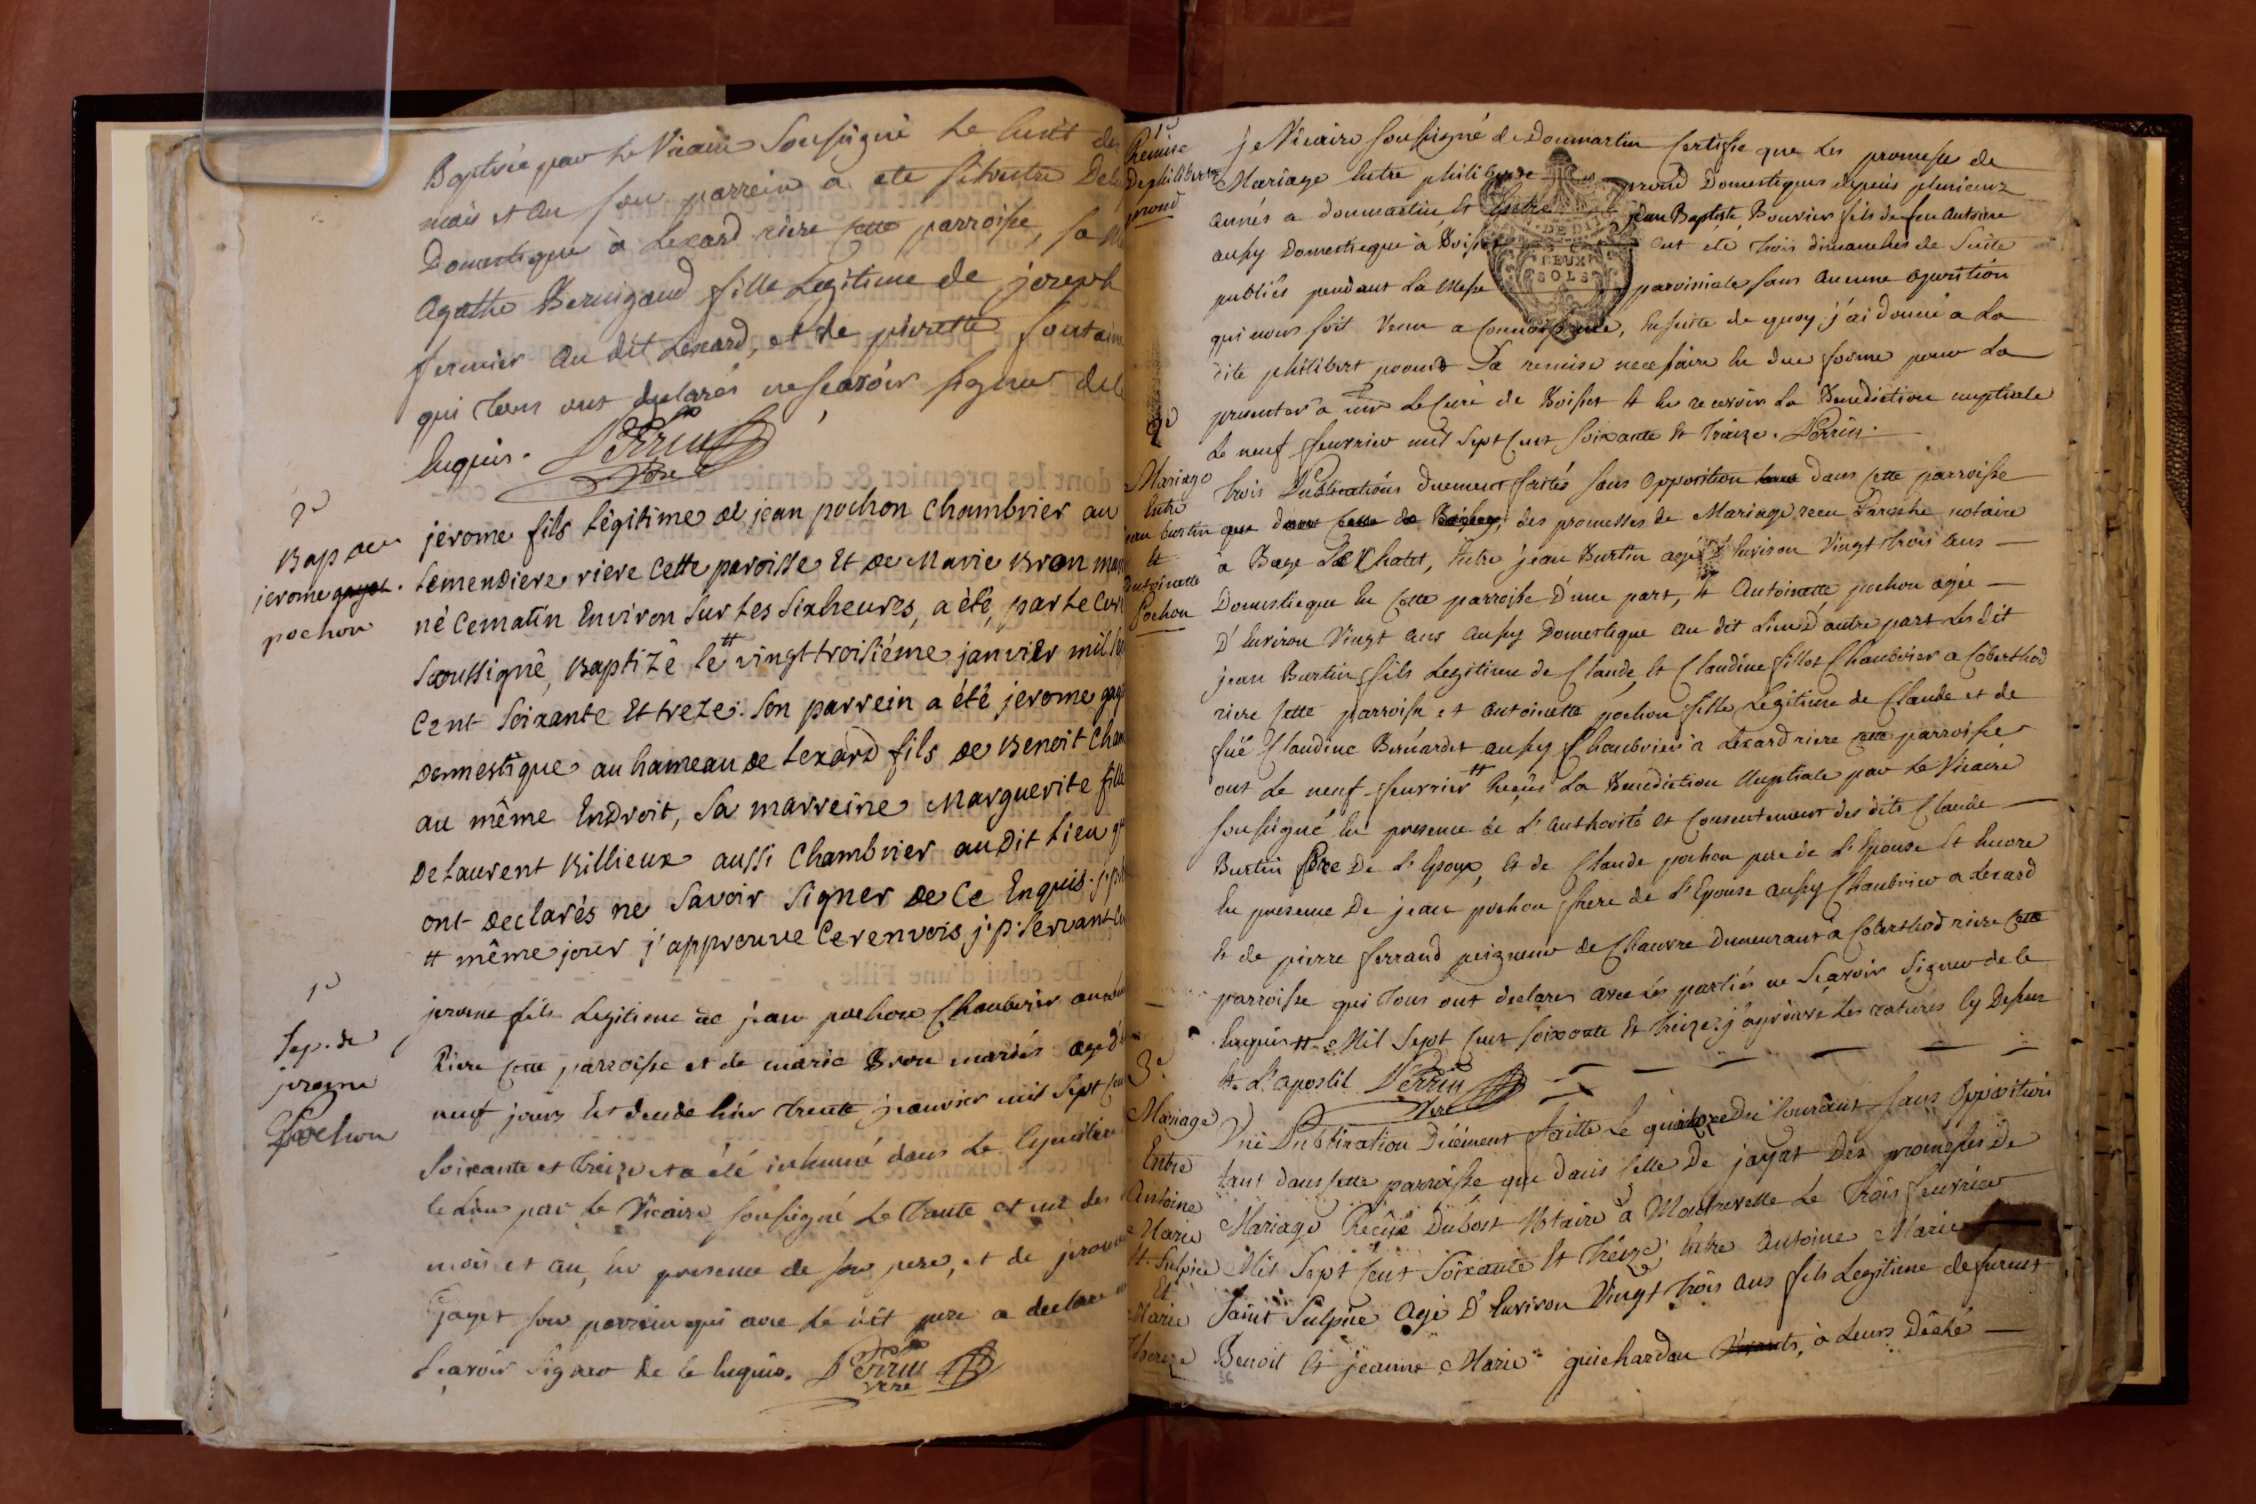 Baptisée par le Vicaire soussigné le huit des
mois et an son parrein a eté silvestre
Domestique à Lexard riere cette parroisse, sa
agathe Bernigaud fille Legitime de joseph
fermier au dit Lexard, et de pierrette fontaine
qui tous ont declarés ne scavoir signer de ce
Enquis. Perrin
Vre
2e
Bap de
jerome gaget.
pochon
jerome fils Légitime de jean pochon chambrier au
temendiere riere cette paroisse Et de Marie Bron
né ce matin Environ sur les six heures, a été, par le curé
soussigné, Baptizé le # vingt troisiéme janvier mil
cent soixante Et treze. son parrein a été jerome
Domestique au hameau de Lexard fils de Benoit
au même Endroit, sa marreine Marguerite fille
De laurent Billieux aussi chambrier au dit lieu
ont declarés ne savoir signer de ce Enquis.
# même jour j'approuve ce renvois j.p. servant
1e
sep. de
jerome
Pochon
jerome fils Legitime de jean pochon Chambrier au
Riere cette parroisse et de marie Bron mariés agé
neuf jours Est decedé hier trente janvier mil sept
soixante et treize et a été inhumé dans le Cymetiere
le Lieu par le Vicaire soussigné le trente et un des
mois et an, En presence de son pere, et de jerome
Gaget son parrein qui avec le dit pere a declaré
scavoir signer de ce Enquis. Perrin
Vre
1e
Remise
De philiberte
prond
je Vicaire soussigné de Donmartin certifie que Les promesse de
Mariage Entre philiberte prond Domestiques depuis plusieurs
années a donmartin, Et Entre jean Baptiste Bouvier fils de feu Antoine
aussy Domestique à Boisset ont été trois dimanches de suite
publiés pendant la Messe parroissiale sans aucune oposition
DEUX
SOLS
qui nous soit venu a connoissance, Ensuite de quoy j'ai donné a La
dite philibert prond La remise necessaire En due forme pour La
presenter a mr Le Curé de Boisset et En recevoir La Benediction nuptiale
Le neuf feuvrier mil sept cent soixante Et treize. Perrin.
2e
Mariage
Entre
jean burtin
et
Antoinette
Pochon
trois Publications duement faites sans opposition dans cette parroisse
que dans celle de des promesses de Mariage recu Paroche notaire
à Bage Le Chatel, Entre jean Burtin agé d'Environ Vingt trois ans
Domestique En cette parroisse d'une part, et Antoinette pochon agée
D'Environ Vingt ans aussy Domestique au dit Lieu d'autre part Les dit
jean Burtin fils Legitime de Claude, et Claudine fillet Chambrier a Coberthod
riere cette parroisse et antoinette pochon fille Legitime de Claude et de
füe Claudine Bernardet aussy Chambrier a Lexard riere cette parroisse
ont Le neuf feuvrier # Reçus La Benediction Nuptiale par Le Vicaire
soussigné En presence de L'authorité et Consentement des dits Claude
Burtin pere De L'Epoux, et de Claude pochon pere de L'Epouse Et Encore
En presence De jean pochon frere de L'Epouse aussy Chambrier a Lexard
Et de pierre ferrand peigneur de Chanvre demeurant a Coberthod riere cette
parroisse qui tous ont declarés avec Les parties ne scavoir signer de ce
Enquis # Mil sept cent soixante Et treize, j'aprouve Les ratures cy Dessus
Et L'apostil Perrin
Vre
3e
Mariage
Entre
Antoine
Marie
St. Sulpice
Et
Marie
Thereze
Une Publication Duement faitte Le quatorze Du Courant sans Opposition
tant dans cette parroisse que dans celle De jayat Des promesses De
Mariage Reçüe Dubost Notaire à Montrevelle Le trois feuvrier
Mil sept cent soixante Et treize, Entre Antoine Marie
Saint Sulpice agé D'Environ Vingt trois ans fils Legitime de furent
Benoit Et jeanne Marie guichardan Vivants, à Leurs Déché
56